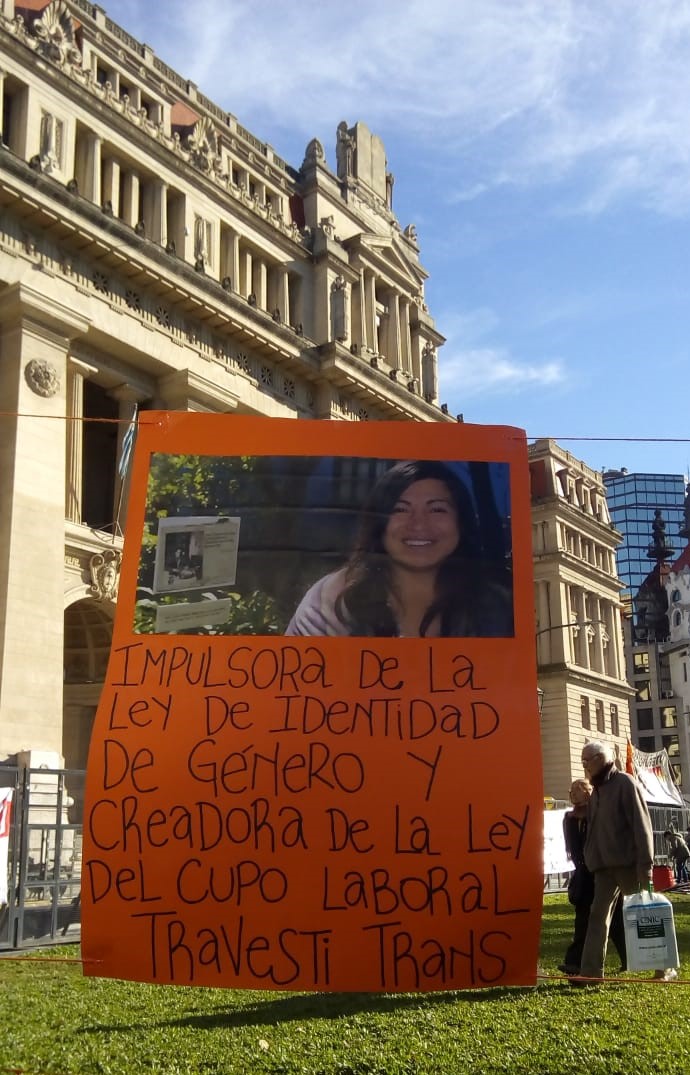 IMPULSORA DE LA
LEY DE IDENTIDAD
DE GÉNERO Y
CREADORA DE LA LEY
DEL CUPO LABORAL
TRAVESTI TRANS
CENIC